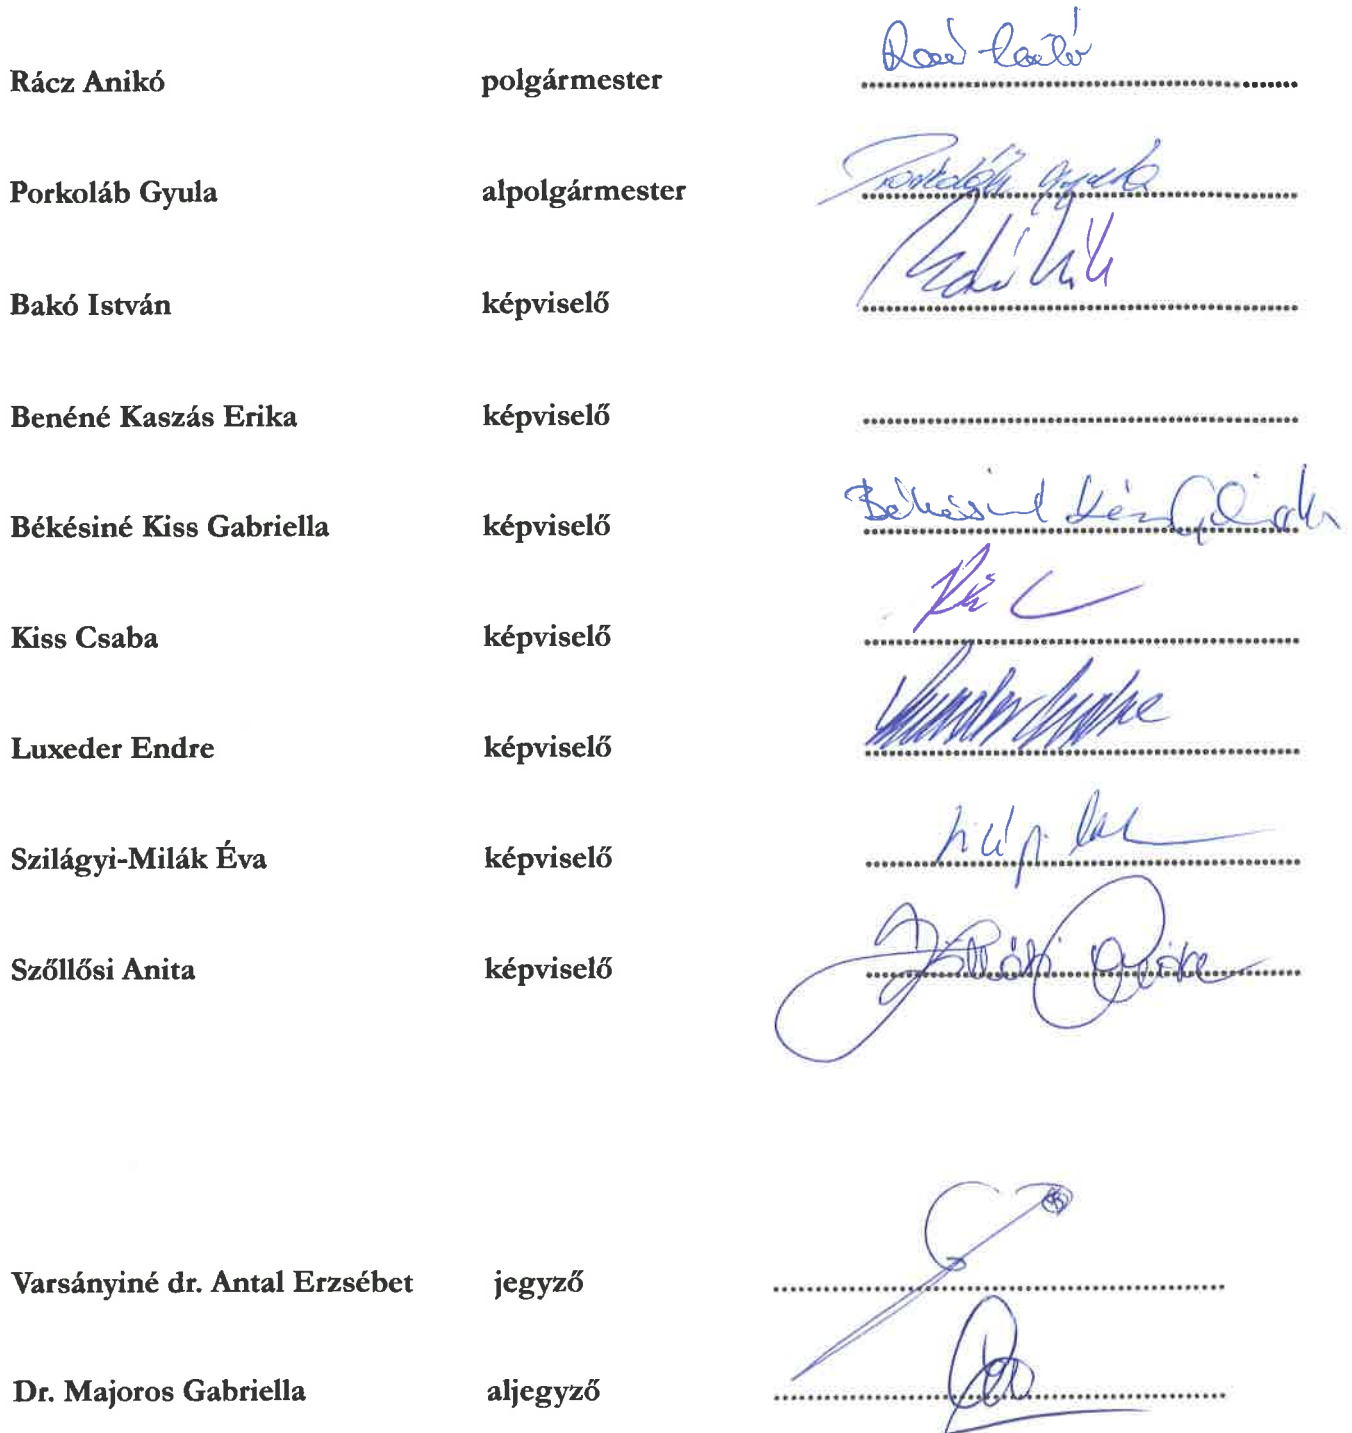 Rácz Anikó polgármester
Porkoláb Gyula alpolgármester Porkoláb Gyula
Bakó István képviselő
Benéné Kaszás Erika képviselő
Békésiné Kiss Gabriella képviselő Békésiné Kiss Gabriella
Kiss Csaba képviselő
Luxeder Endre képviselő Luxeder Endre
Szilágyi-Milák Éva képviselő
Szőllősi Anita képviselő Szőllősi Anita
Varsányiné dr. Antal Erzsébet jegyző
Dr. Majoros Gabriella aljegyző